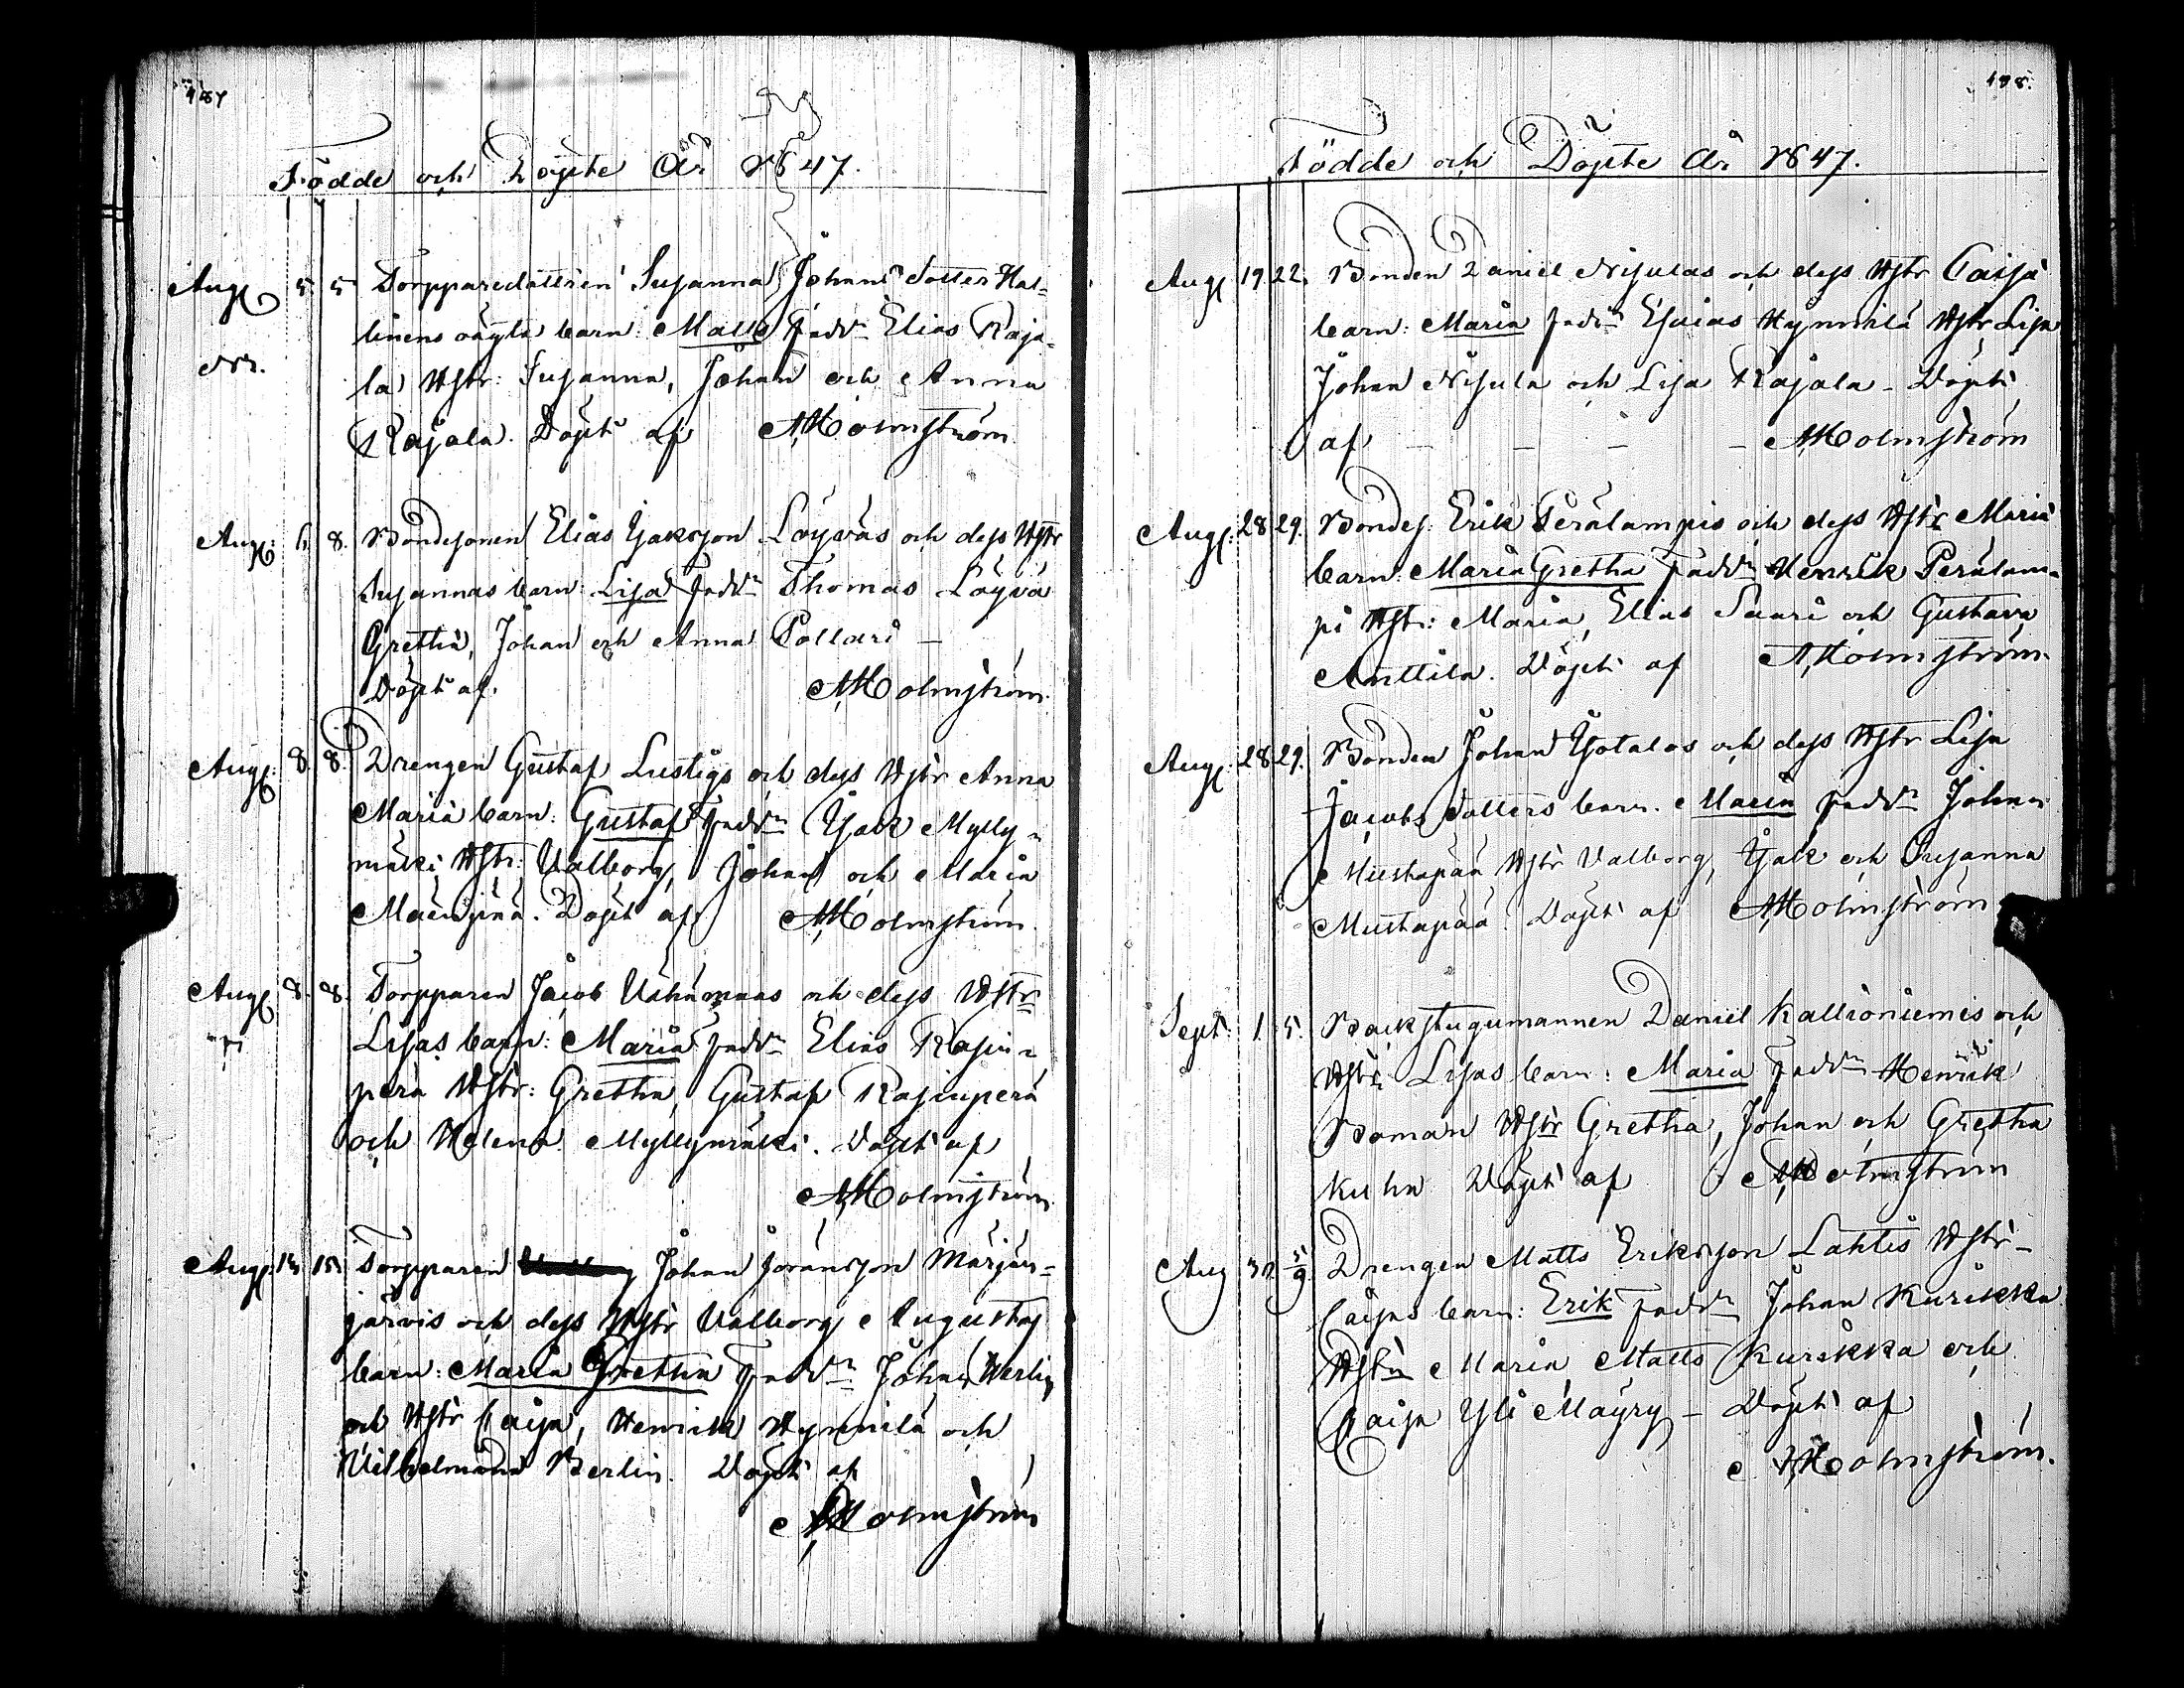 187
Födde och Döpte År 1847.
Augs 5 5 Torpparedottren Susanna Johans Dotter Hal-
linens oägta barn: Matts Faddr Elias Raja-
la Hstr: Susanna, Johan och Anna
Rajala. Döpt af AHolmström
Augs: 6. 8. Bondesonen Elias Isaksson Löyväs och dess Hstr
Susannas barn: Lisa Faddr Thomas Löyvä
Gretha, Johan och Anna Pollari –
Döpt af. AHolmström.
Augs: 8. 8. Drengen Gustaf Lustigs och dess Hstr Anna
Maria barn: Gustaf Faddr Isak Mylly-
mäki Hstr: Valborg, Johan och Maria
Döpt af AHolmström.
Augs: 8. 8. Torpparen Jacob Vähämaas och dess Hstr
Lisas barn: Maria Faddr Elias Rajin-
perä Hstr: Gretha, Gustaf Rajinperä
och Helena Myllymäki. Döpt af
AHolmström
Augs: 14. 15. Torpparen Johan Göransson Märjän-
järvis och dess Hstr Valborg Augustas
barn: Maria Gretha Faddr Johan
och Hstr Caisa, Henrik Hynnilä och
Vilhelmina Berlin. Döpt af
AHolmström
188.
Födde och Döpte År 1847.
Augs 19. 22. Bonden Daniel Nisulas och dess Hstr Caisa
barn: Maria Faddr Esaias Hynnilä Hstr Lisa
Johan Nisula och Lisa Rajala – Döpt
af – – – – AHolmström
Augs: 28 29. Bondes. Erik Perälampis och dess Hstr Maria
barn: Maria Gretha Faddr Henrik Perälam-
pi Hstr: Maria, Elias Saari och Gustava
Anttila. Döpt af AHolmström.
Augs: 28 29. Bonden Johan Isotalos och dess Hstr Lisa
Jacobs Dotters barn. Maria Faddr Johan
Mustapää Hstr Valborg, Isak och Susanna
Mustapää. Döpt af AHolmström
Sept: 1. 5. Backstugumannen Daniel Kallioniemis och
Hstr: Lisas barn: Maria Faddr Henrik
Boman Hstr Gretha, Johan och Gretha
Kuha Döpt af AHolmström
Aug 31 5/9. Drengen Matts Eriksson Lahtis Hstr –
Caisas barn: Erik Faddr Johan Kurikka
Hstr Maria, Matts Kurikka och
Caisa Yli Mäyry – Döpt af
AHolmström.